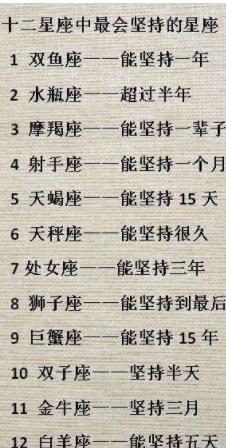 十二星座中最会坚持的星座
1 双鱼座——能坚持一年
2 水瓶座——超过半年
3 摩羯座——能坚持一辈子
4 射手座——能坚持一个月
5 天蝎座——能坚持 15 天
6 天秤座——能坚持很久
7 处女座——能坚持三年
8 狮子座——能坚持到最后
9 巨蟹座——能坚持 15 年
10 双子座——坚持半天
11 金牛座——坚持三月
12 白羊座——能坚持五天